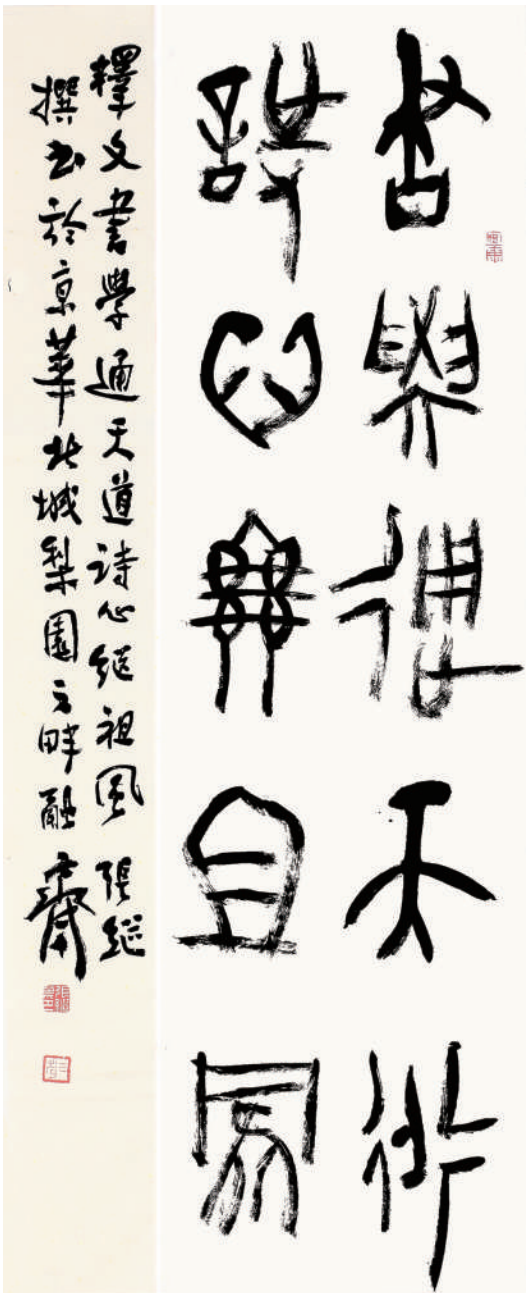 書學通天道
詩心繼祖風
釋文書學通天道詩心繼祖風 張繼
撰书於京華北城梨園之畔融齋